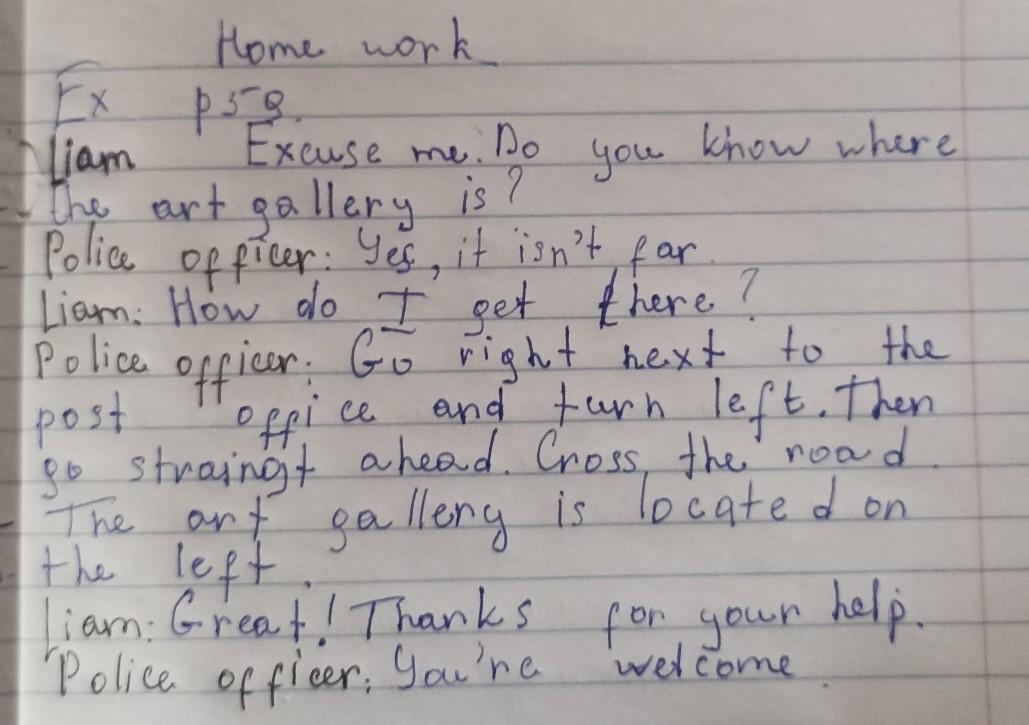 Home work
Ex p 59.
Liam Excuse me. Do you know where
the art gallery is?
Police officer: Yes, it isn't far.
Liam: How do I get there?
Police officer: Go right next to the
post office and turn left. Then
go straingt ahead. Cross the road.
The art gallery is located on
the left.
Liam: Great! Thanks for your help.
Police officer: You're welcome.